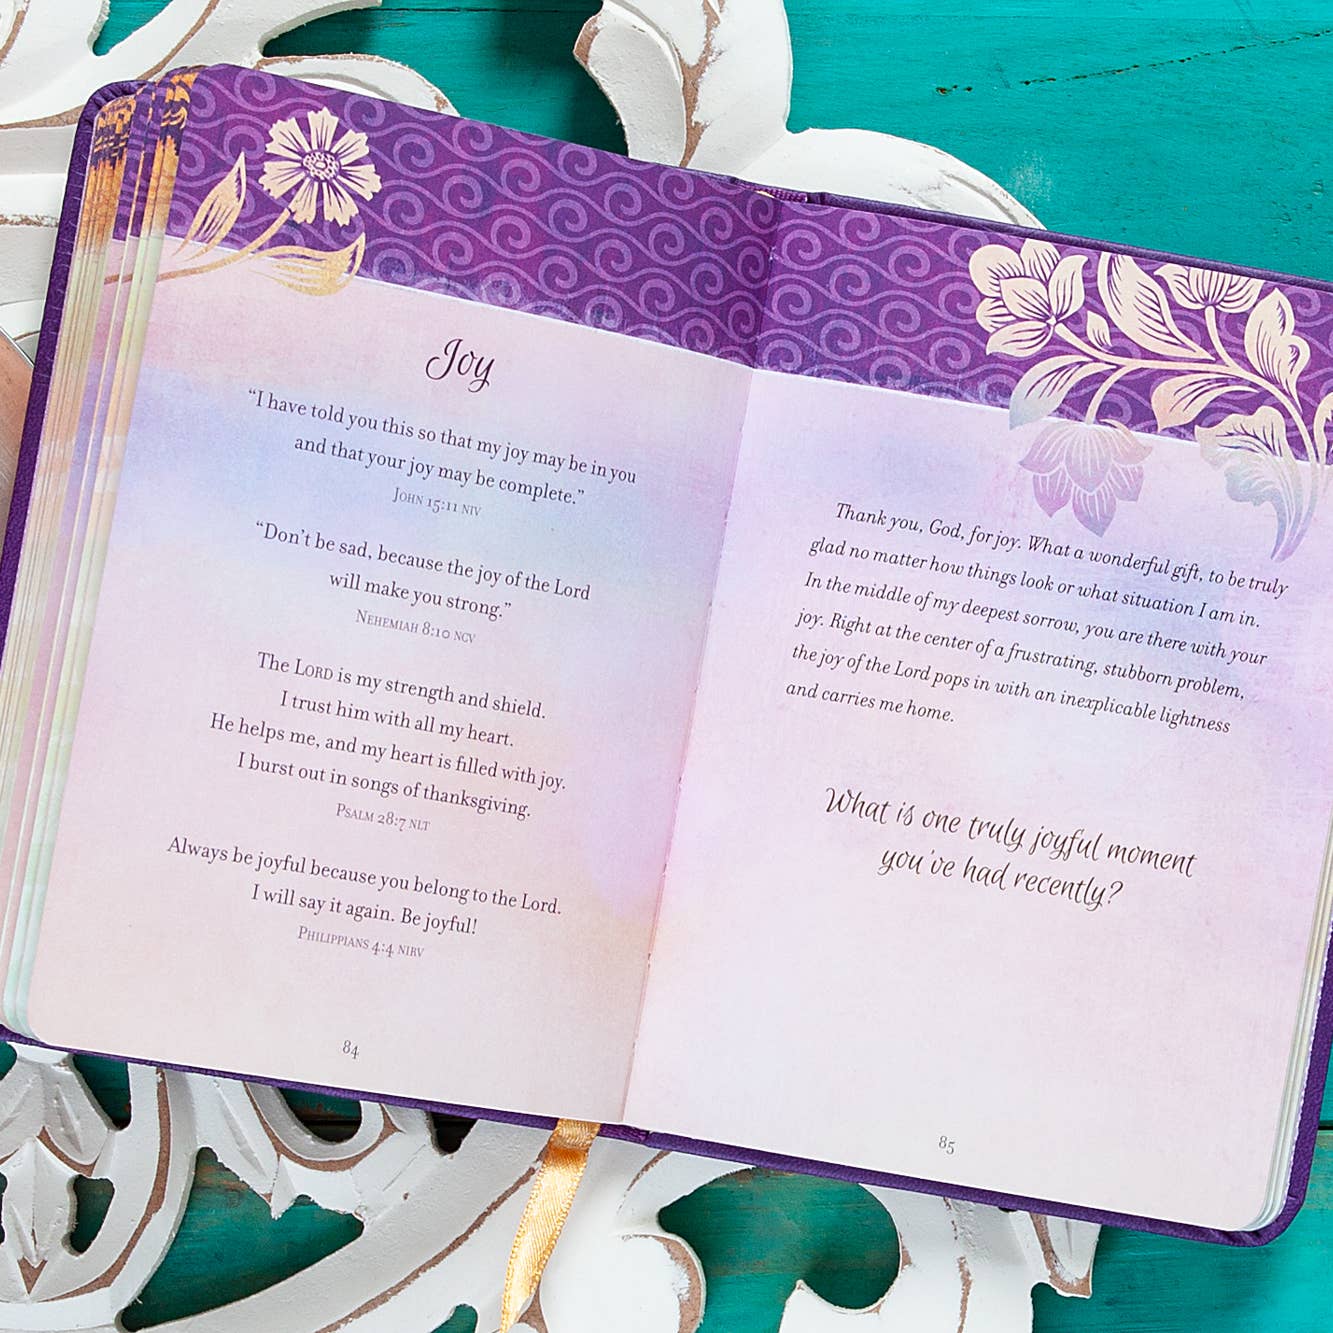 Joy
“I have told you this so that my joy may be in you
and that your joy may be complete.”
John 15:11 NIV
“Don’t be sad, because the joy of the Lord
will make you strong.”
Nehemiah 8:10 NCV
The LORD is my strength and shield.
I trust him with all my heart.
He helps me, and my heart is filled with joy.
I burst out in songs of thanksgiving.
Psalm 28:7 NLT
Always be joyful because you belong to the Lord.
I will say it again. Be joyful!
Philippians 4:4 NIRV
84
Thank you, God, for joy. What a wonderful gift, to be truly
glad no matter how things look or what situation I am in.
In the middle of my deepest sorrow, you are there with your
joy. Right at the center of a frustrating, stubborn problem,
the joy of the Lord pops in with an inexplicable lightness
and carries me home.
What is one truly joyful moment
you’ve had recently?
85